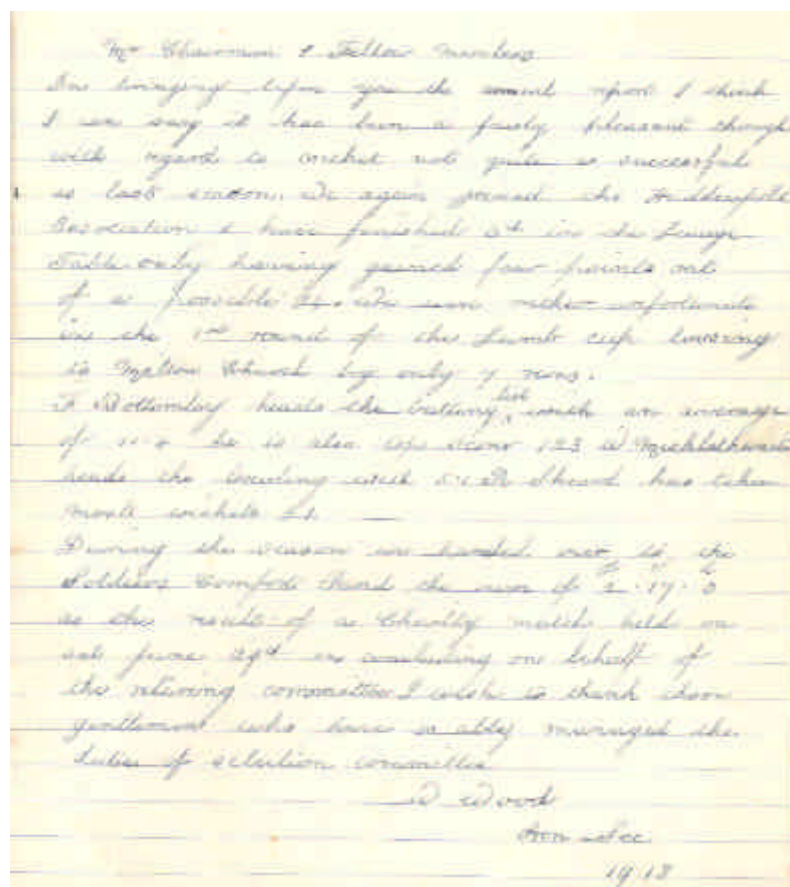 Mr Chairman & Fellow members
In bringing before you the annual report I think
I can say it has been a fairly pleasant though
with regard to cricket not quite so successful
as last season. We again joined the Huddersfield
Association & have finished in the League
Table only having gained four points out
of a possible We were rather unfortunate
in the 1st round of the Lumb cup loosing
to Meltham Church by only 7 runs.
Bottomley heads the batting list with an average
of he is also 123 W Micklethwaite
heads the bowling with Sheard has taken
most wickets
During the season we handed over to the
Soldiers Comfort Fund the sum of £ 2.17.0
as the result of a Charity match held on
sat June 29th in concluding on behalf of
the retiring committee I wish to thank those
gentlemen who have so ably managed the
duties of selection committee
W Wood
Hon Sec
1918